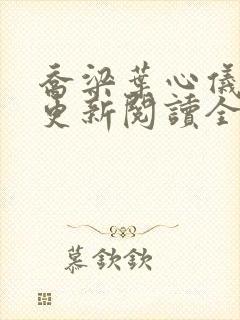 喬梁葉心儀
更新閱讀全
慕欽欽